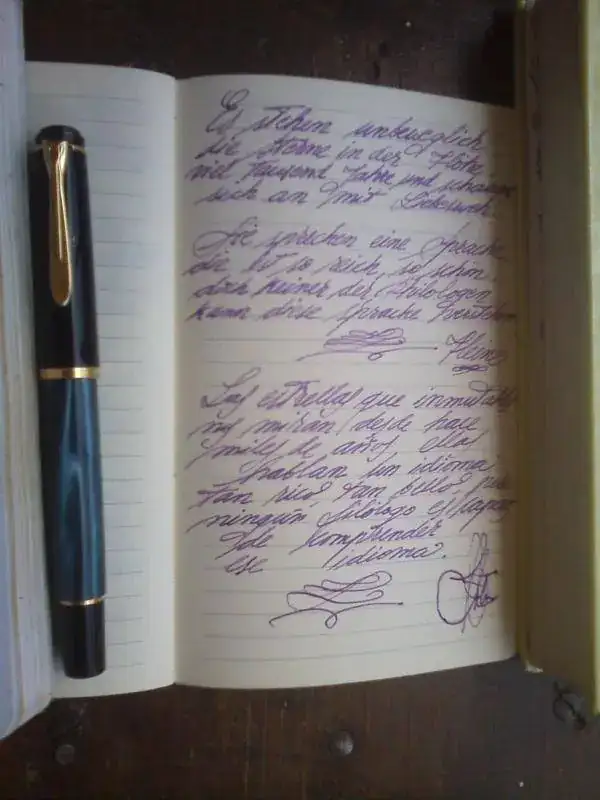 Es stehen unbeweglich
die Sterne in der Höhe
viel tausend Jahre und schauen
sich an mit Liebesweh
Sie sprechen eine Sprache
die ist so reich, so schön
doch keiner der Philologen
kann diese Sprache verstehen
Heine
Las estrellas que inmutables
nos miran desde hace
miles de años ellas
hablan un idioma
tan rico, tan bello que
ningún filólogo es capaz
de comprender
ese idioma.